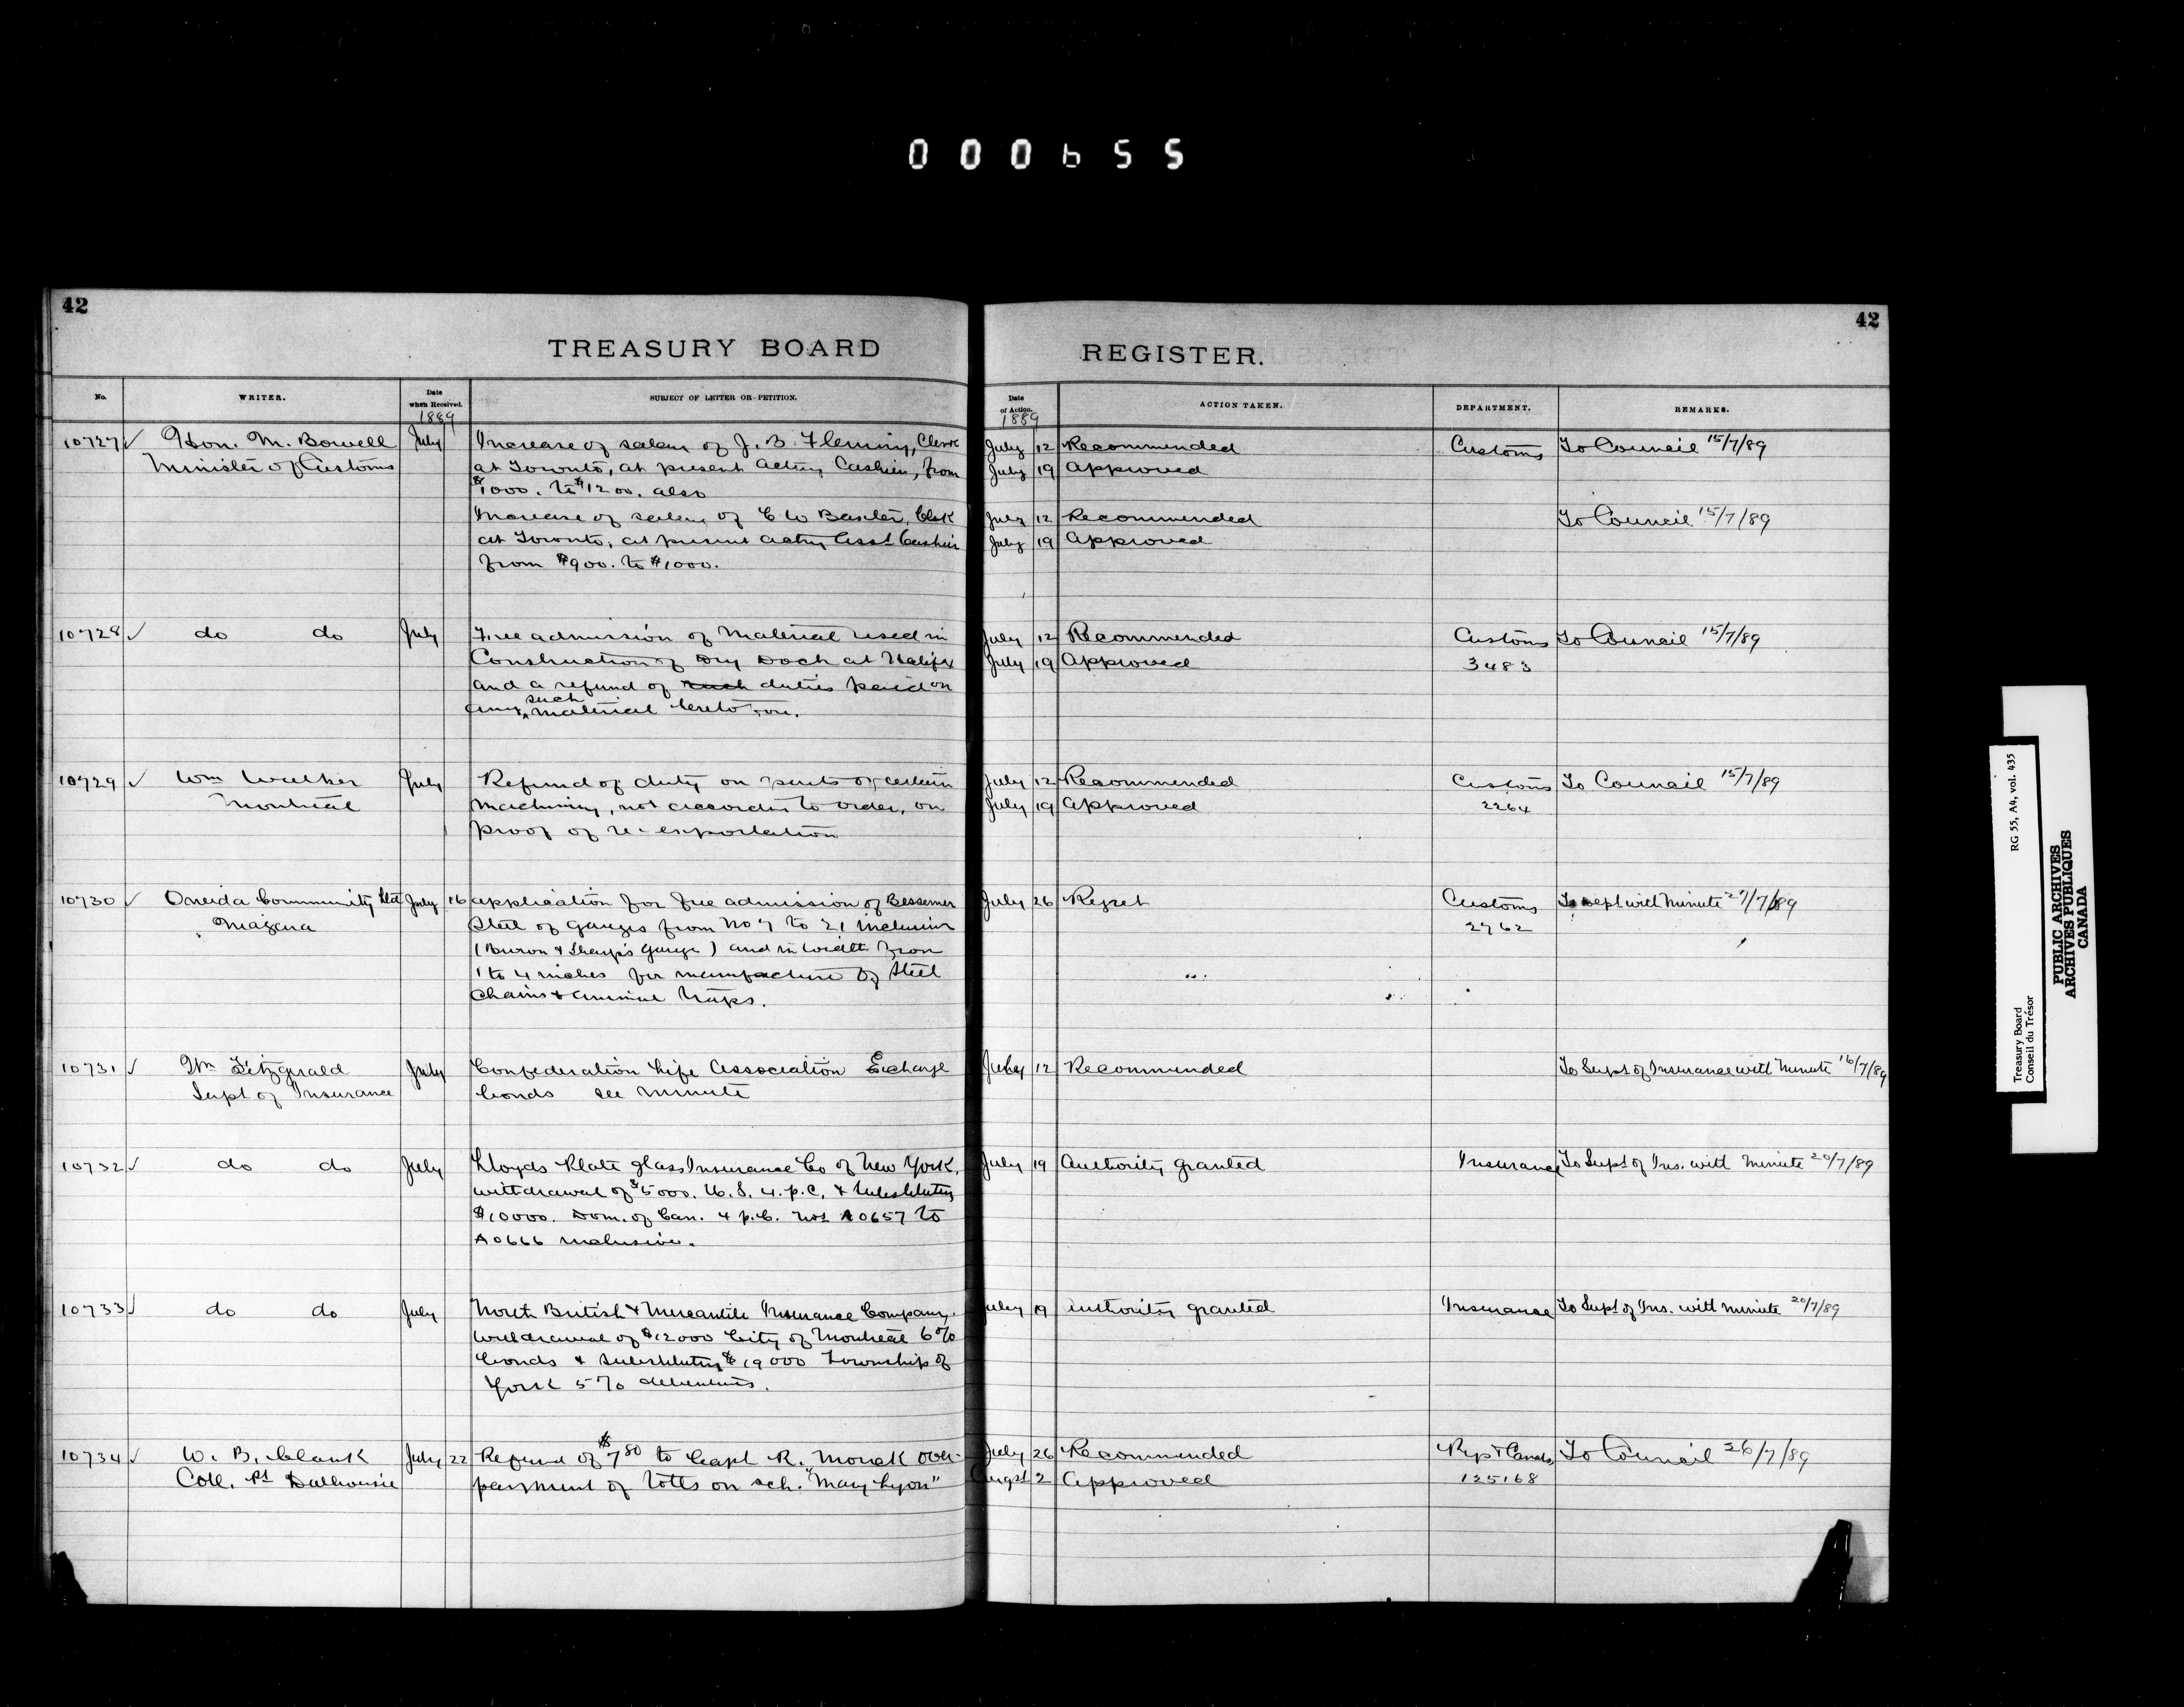 000655
42
42
TREASURY BOARD
REGISTER.
No.
WRITER.
Date when Received.
SUBJECT OF LETTER OR PETITION.
Date of Action.
ACTION TAKEN.
DEPARTMENT.
REMARKS.
1889
1889
10727 Hon. M. Bowell July Increase of salary of J. B. Fleming, Clerk July 12 Recommended Customs To Council 15/7/89
Minister of Customs at Toronto, at present acting Cashier, from July 19 Approved
$1000. to $1200. also
Increase of salary of C W Baxter, Clerk July 12 Recommended To Council 15/7/89
at Toronto, at present acting Asst Cashier July 19 Approved
from $900. to $1000.
10728 do do July Free admission of Material used in July 12 Recommended Customs To Council 15/7/89
Construction of Dry Dock at Halifax July 19 Approved 3483
and a refund of such duties paid on
any such material heretofore.
10729 Wm Walker July Refund of duty on parts of certain July 12 Recommended Customs To Council 15/7/89
Montreal machinery, not according to order, on July 19 Approved 2264
proof of re-exportation
10730 Oneida Community Ltd July 16 application for free admission of Bessemer July 26 Regret Customs To Dept with Minute 27/7/89
Niagara Steel of gauges from No 7 to 21 inclusive 2762
( & Sharp's Gauge) and in width from
1 to 4 inches for manufacture of Steel
Chains & animal traps.
10731 Wm Fitzgerald July Confederation Life Association Exchange July 12 Recommended To Supt of Insurance with Minute 16/7/89
Supt of Insurance bonds see Minute
10732 do do July Lloyds Plate Glass Insurance Co of New York, July 19 Authority granted Insurance To Supt of Ins. with Minute 20/7/89
withdrawal of $5000. U.S. 4. p.c. & substituting
$10000. Dom. of Can. 4 p.c. Nos A0657 to
A0666 inclusive.
10733 do do July North British & Mercantile Insurance Company, July 19 Authority granted Insurance To Supt of Ins. with minute 20/7/89
withdrawal of $12000 City of Montreal 6%
bonds & substituting $19000 Township of
York 5% debentures.
10734 W. B. Clark July 22 Refund of $7.80 to Capt R. Monck over- July 26 Recommended Rys & Canals To Council 26/7/89
Coll. Pt Dalhousie payment of tolls on sch. "Mary Lyon" Augst 2 Approved 125168
Treasury Board RG 55, A4, vol. 435
Conseil du Trésor
PUBLIC ARCHIVES
ARCHIVES PUBLIQUES
CANADA